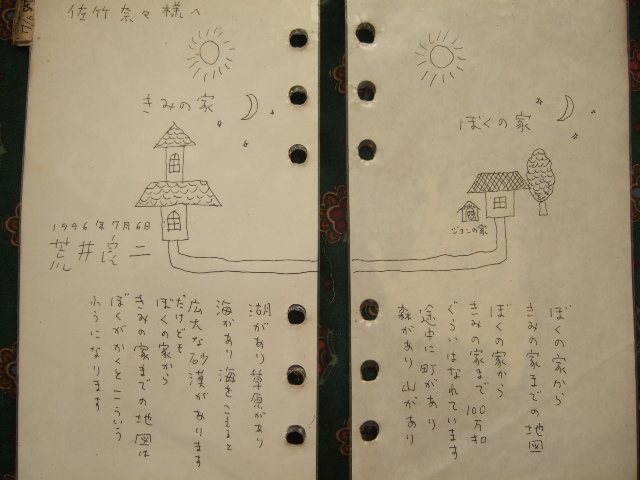 佐竹奈々様へ
きみの家
ぼくの家
ジョンの家
1996年7月6日
荒井良二
ぼくの家から
きみの家までの地図
ぼくの家から
きみの家まで100万キロ
ぐらいはなれています
途中に町があり
森があり 山があり
湖があり 草原があり
海があり 海をこえると
広大な砂漠があります
だけども
ぼくの家から
きみの家までの地図は
ぼくがかくとこういう
ふうになります